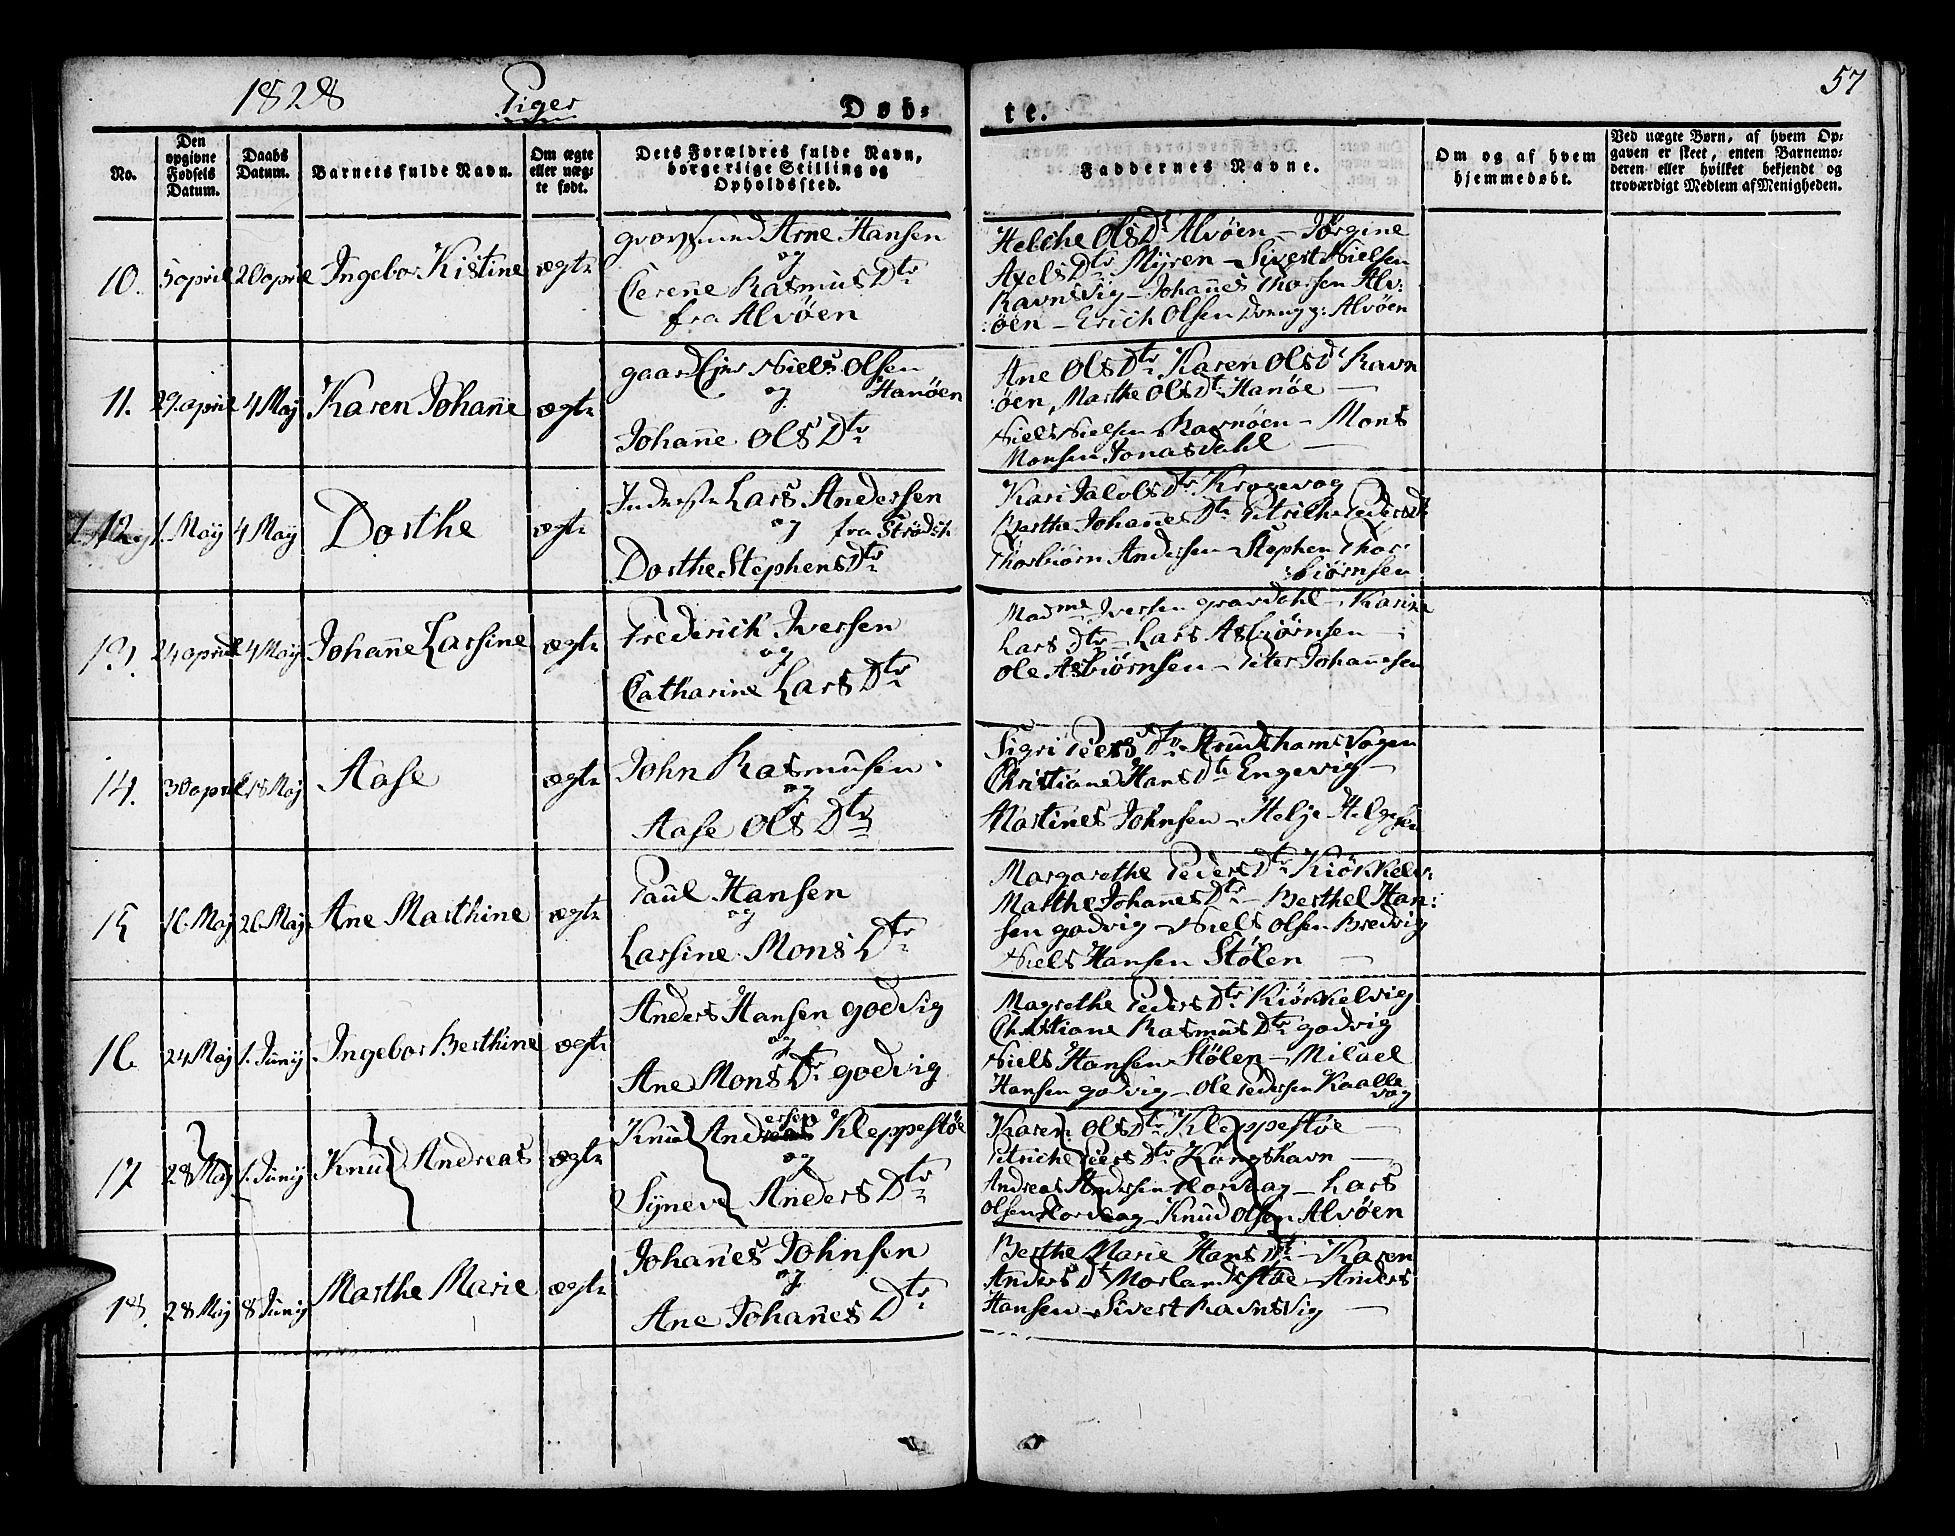 1828 Piger Døb- te. 57
No.
Den opgivne Fødsels Datum.
Daabs Datum.
Barnets fulde Navn.
Om ægte eller uægte født.
Dets Forældres fulde Navn, borgerlige Stilling og Opholdssted.
Faddernes Navne.
Om og af hvem hjemmedøbt.
Ved uægte Børn, af hvem Opgaven er skeet, enten Barnemoderen eller hvilket bekjendt og troværdigt Medlem af Menigheden.
10. 5 april 20 april Ingebor Kistine ægte
Arne Hansen
og
Cerene Rasmus Dtr
fra Alvøen
Helche Ols Dt Alvøen – Jørgine
Axels Dtr Myren – Sivert Nielsen
Ravnsvig – Johannes Thorsen Alv:
:øen – Erich Olsen Alvøen
11. 29 april 4 May Karen Johanne ægte
gaardbr Niels Olsen
og Hanøen
Johanne Ols Dtr
Ane Ols Dtr Karen Ols Dt Ravn
:øen, Marthe Ols Dt Hanøe –
Niels Nielsen Ravnøen – Mons
Monsen Jonasdahl –
12 1. May 4 May Dorthe ægte
Inderste Lars Andersen
og fra Strødsh
Dorthe Stephens Dtr
Kari Jacobs Dtr Kragevog
Berthe Johannes Dtr Petriche Peders Dt
Thorbiørn Andersen – Stephen Thor-
:biørnsen
13. 24 april 4 May Johanne Larsine ægte
Frederich Iversen
og
Catharine Lars Dtr
Madme Iversen gravdahl – Karine
Lars Dtr – Lars Asbiørnsen –
Ole Asbiørnsen – Peter Johannesen
14. 30 april 18 May Aase ægte
John Rasmusen
og
Aase Ols Dtr
Sigri Peers Dtr Strudshamsvogen
Christiane Hans Dtr Engevig –
Martines Johnsen – Helje Helgesen
15 16. May 26. May Ane Marthine ægte
Paul Hansen
og
Larsine Mons Dtr
Margarethe Peders Dtr Kiørkelv:
Marthe Johannes Dtr – Berthel Han:
sen godvig – Niels Olsen Bredvig
Niels Hansen Stølen –
16. 24 May 1. Junij Ingebor Berthine ægte
Anders Hansen godvig
og
Ane Mons Dtr godvig
Magrethe Peders Dtr Kiørkelvig
Christiane Rasmus Dtr godvig
Niels Hansen Stølen – Michael
Hansen godvig – Ole Pedersen Kaalle
vog
17 28 May 1. Junij Knud Andreas ægte
Knud Andersen Kleppestøe
og
Synneve Anders Dtr
Karen Ols Dtr Kleppestøe –
Petriche Peers Dtr Kongshavn –
Andreas Andersen Florvaag – Lars
Olsen Florvaag – Knud Olsen Alvøen
18. 28 May 8 Junij Marthe Marie ægte
Johannes Johnsen
og
Ane Johannes Dtr
Berthe Marie Hans Dt – Karen
Anders Dt Morlandstøe – Anders
Hansen – Sivert Ravnsvig –